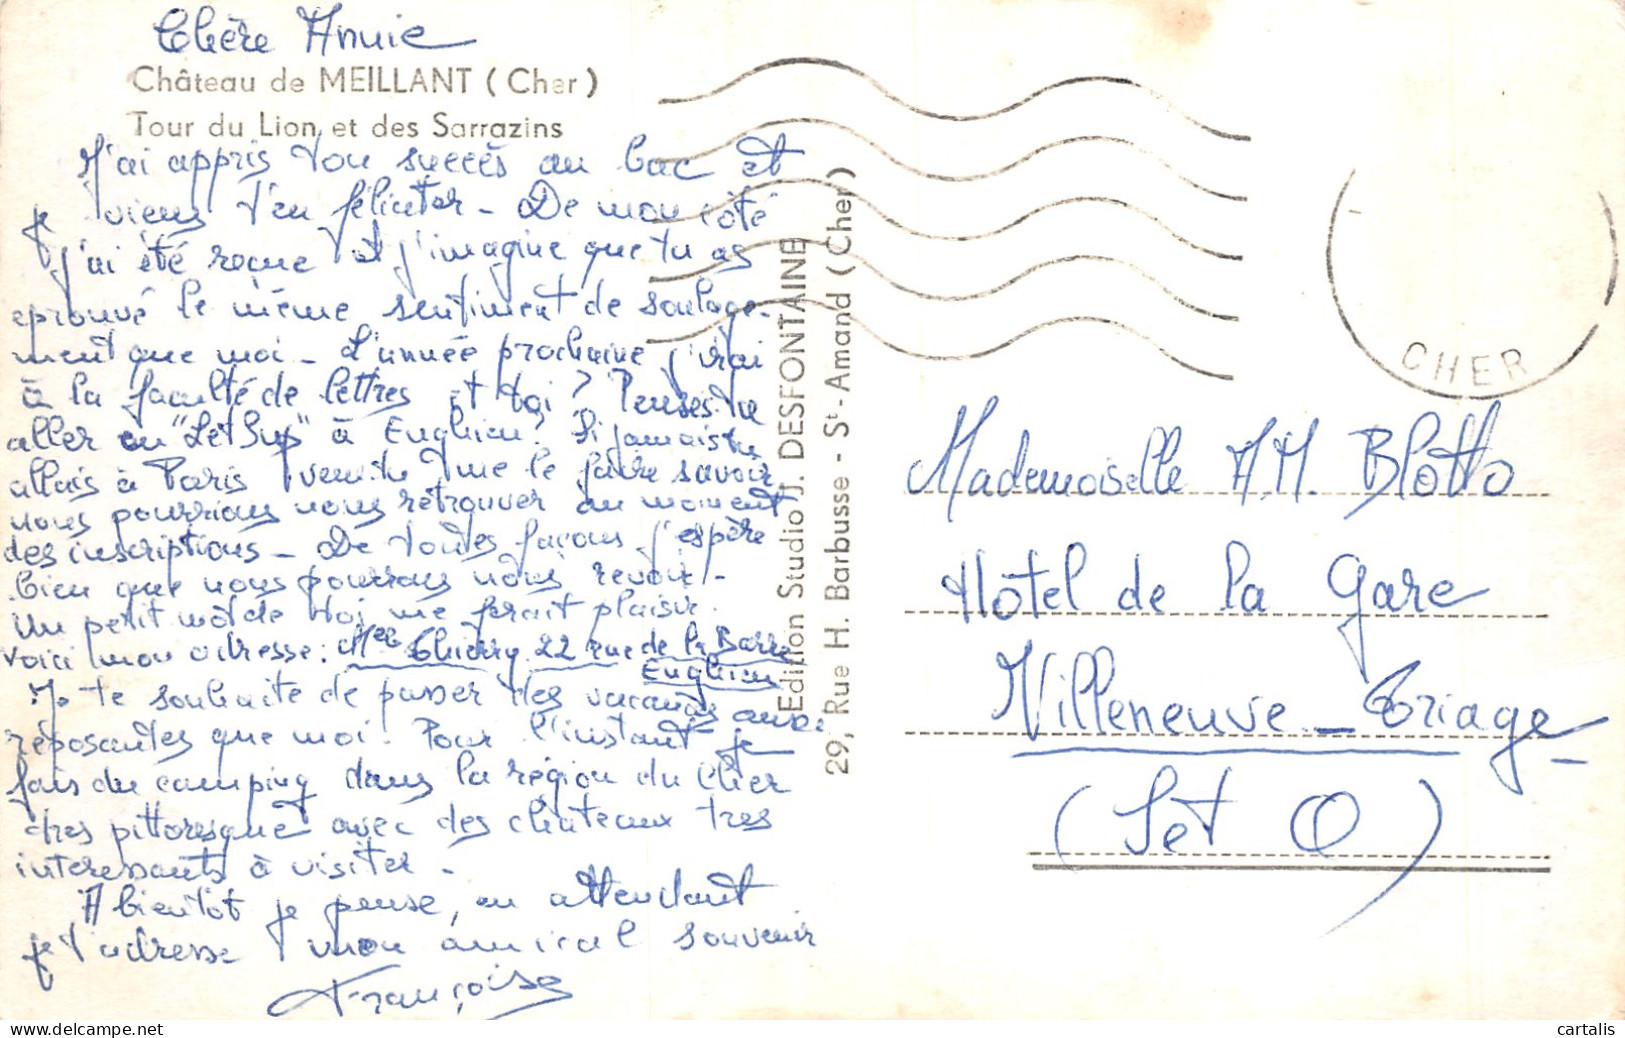 Chère Annie
Château de MEILLANT (Cher)
Tour du Lion et des Sarrazins
J'ai appris ton succès au bac et
je viens t'en féliciter - De mon côté
j'ai été reçue et j'imagine que tu as
eprouvé le même sentiment de soulage-
ment que moi - L'année prochaine j'irai
à la faculté de lettres et toi ? Penses-tu
aller en "Let Sup" à Enghien? Si jamais tu
allais à Paris me le faire savoir
nous pourrions nous retrouver au moment
des inscriptions - De toutes façons j'espère
bien que nous pourrons nous revoir -
Un petit mot de toi me ferait plaisir.
voici mon adresse : Melle Thierry 22 rue de la Barre
Enghien
Je te souhaite de passer des vacances aussi
reposantes que moi. Pour l'instant je
fais du camping dans la région du Cher
tres pittoresque avec des châteaux tres
interessants à visiter -
A bientôt je pense, en attendant
je t'adresse mon amical souvenir
Françoise
Edition Studio J. DESFONTAINE
29, Rue H. Barbusse - St-Amand (Cher)
CHER
Mademoiselle A.M. Blotto
Hôtel de la Gare
Villeneuve - Triage
(S et O)
cartalis